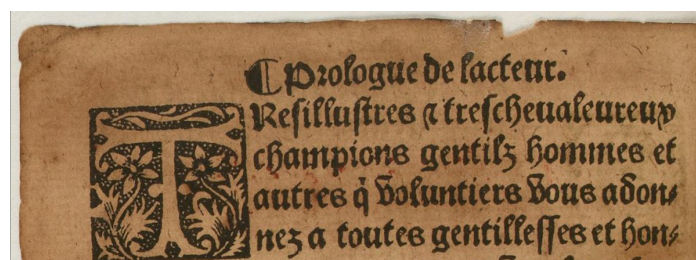 ¶ Prologue de lacteur.
TResillustres ⁊ trescheualeureux
champions gentilz hommes et
autres q̃ voluntiers vous adon⸗
nez a toutes gentillesses et hon⸗